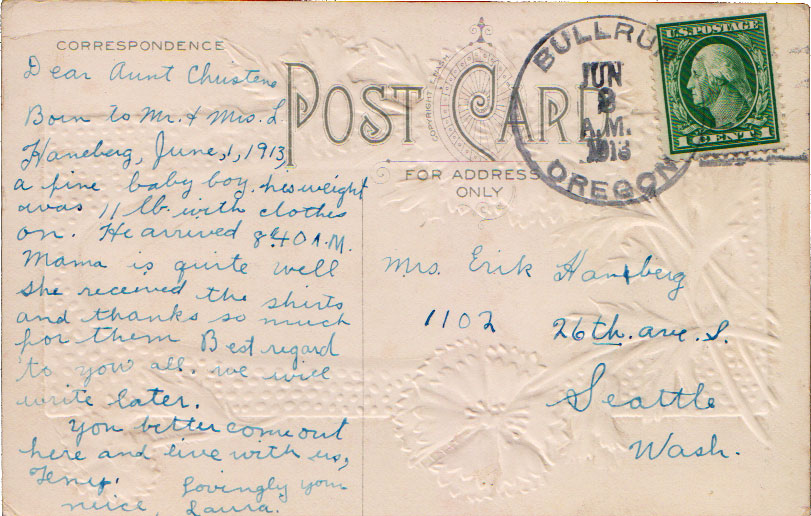 CORRESPONDENCE
Dear Aunt Christene
Born to Mr. & Mrs. L.
Haneberg, June, 1, 1913,
a fine baby boy. hes weight
was 11 lb. with clothes
on. He arrived 8:40 A.M.
Mama is quite well
she received the shirts
and thanks so much
for them Best regard
to you all. we will
write later.
You better come out
here and live with us,
Lovingly your
neice, Laura.
POST CARD
FOR ADDRESS
ONLY
BULLRUN
JUN
A.M.
1913
OREGON
U.S. POSTAGE
1 CENTS 1
Mrs. Erik Haneberg
1102 26th. ave. S.
Seattle
Wash.